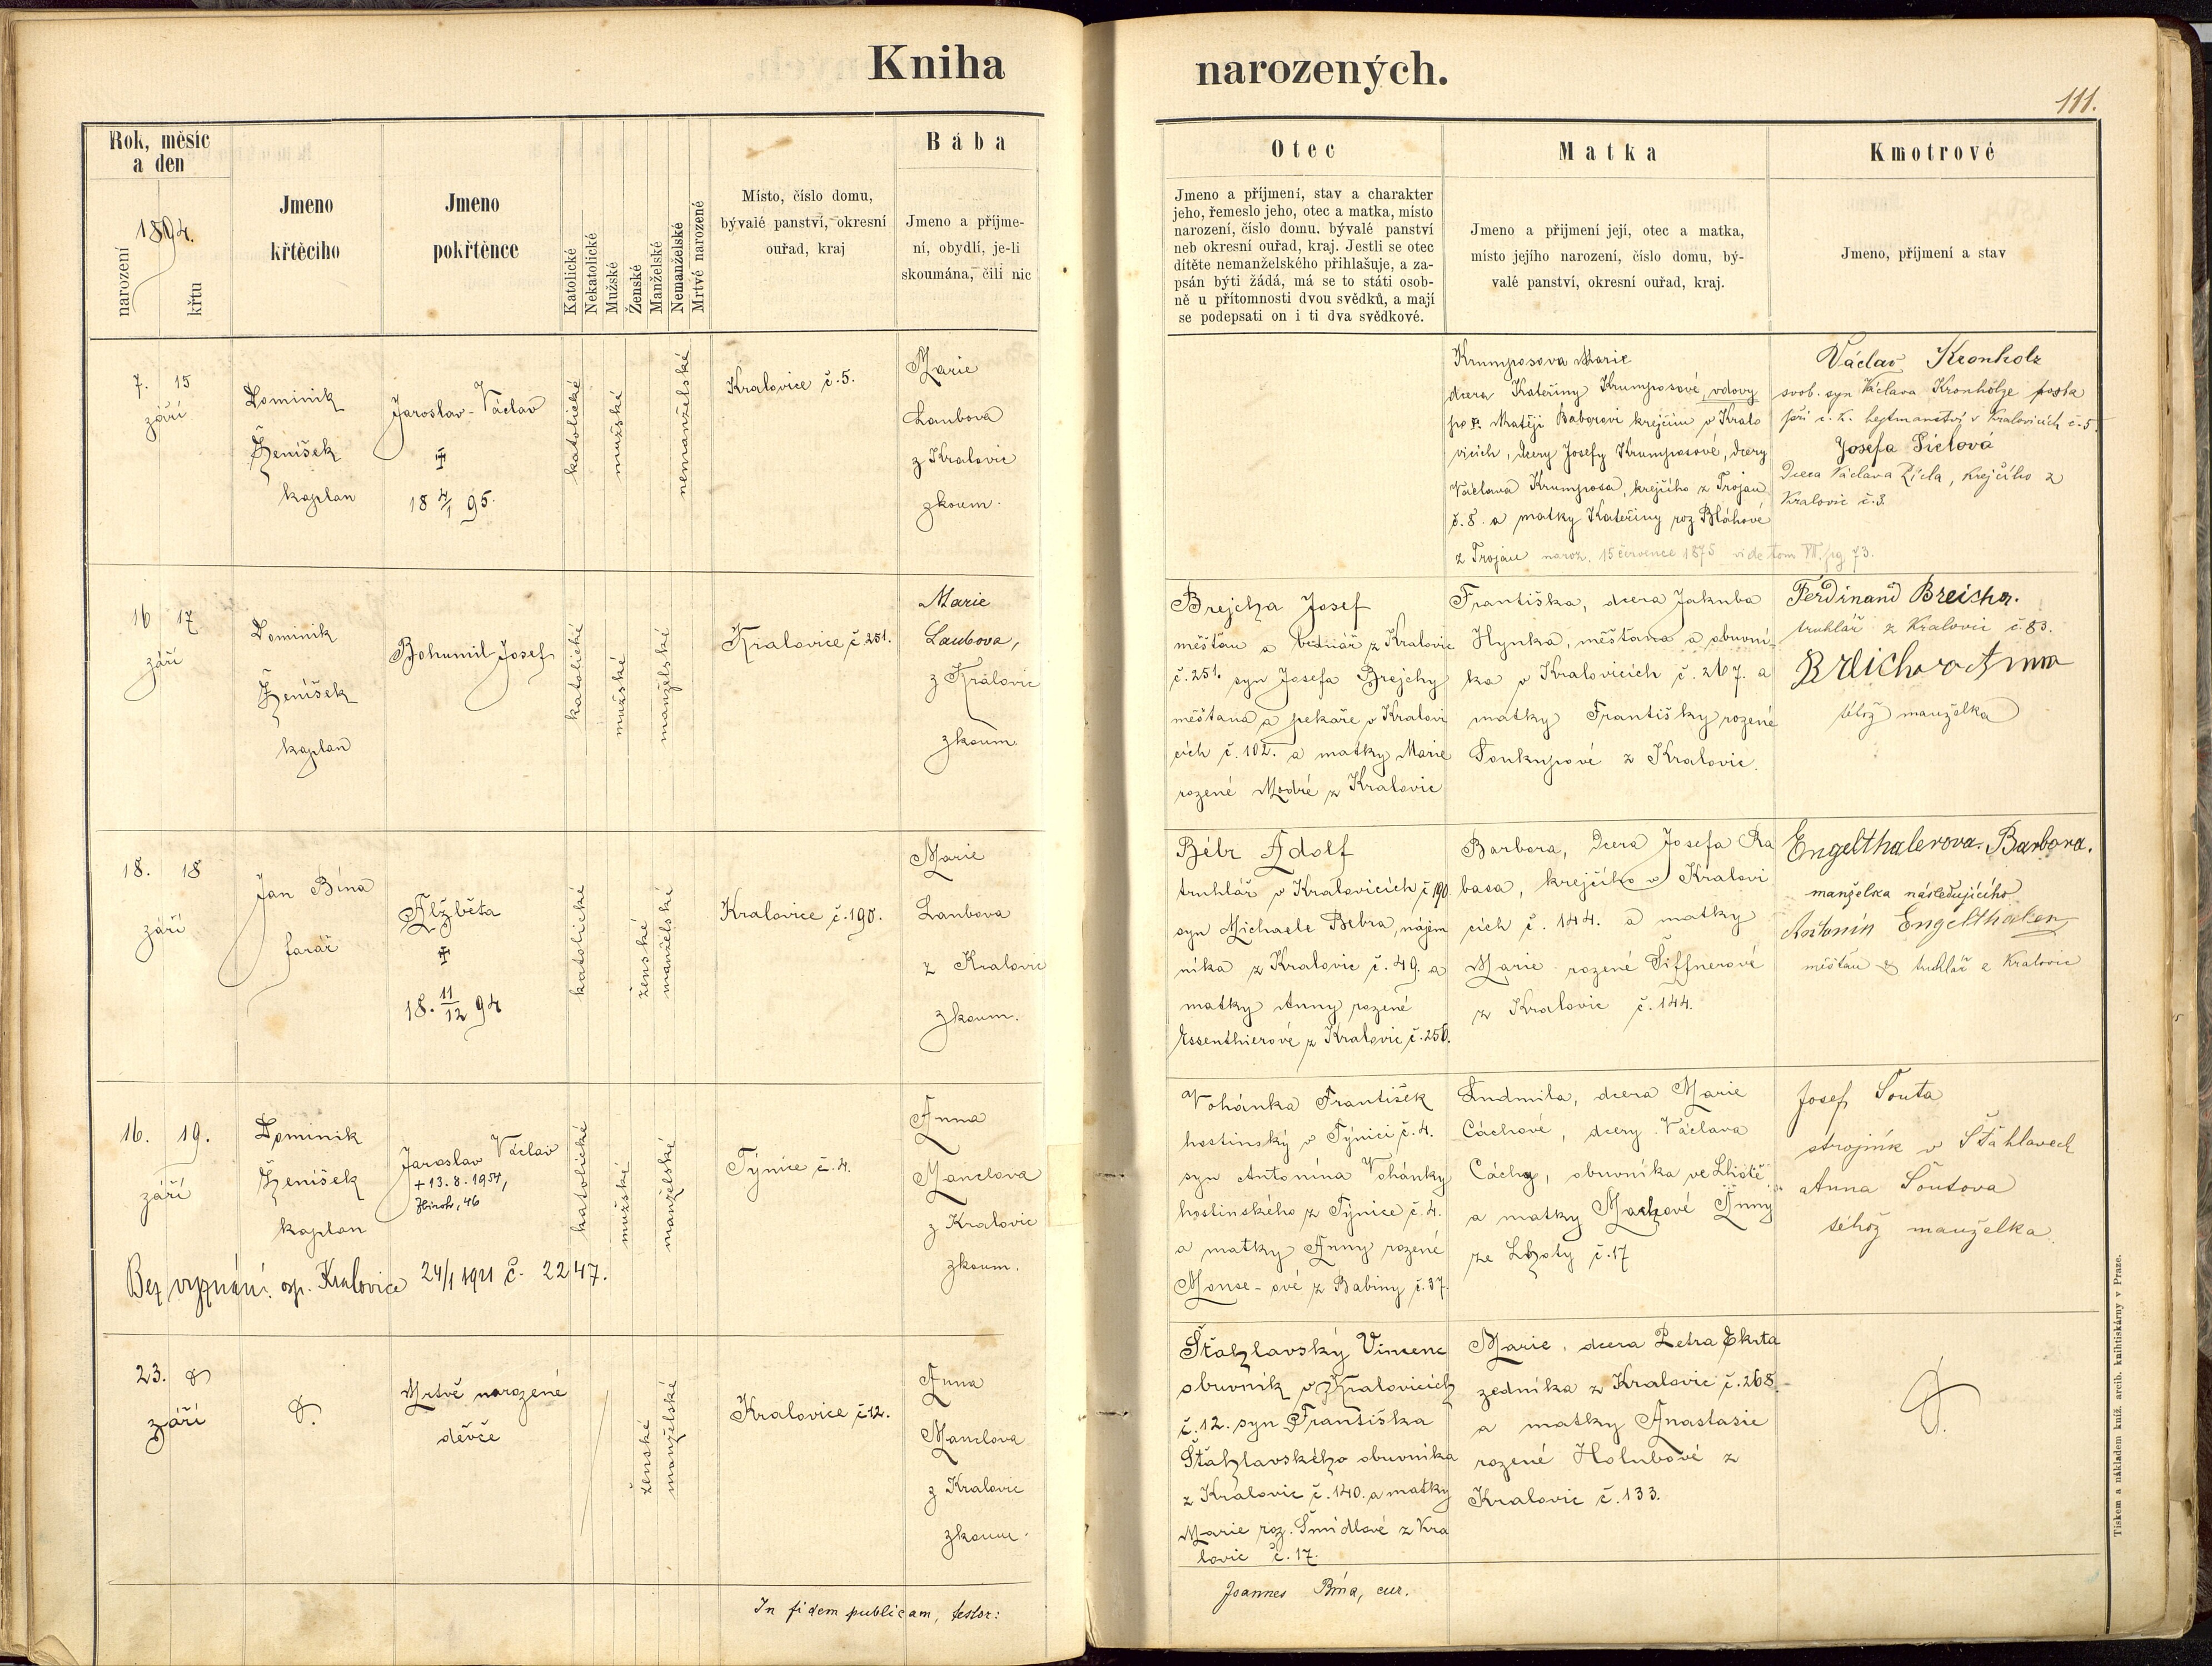 Kniha
narozených.
111.
Rok, měsíc
a den
1894.
narození
křtu
Jmeno
křtěcího
Jmeno
pokřtěnce
Katolické
Nekatolické
Mužské
Ženské
Manželské
Nemanželské
Mrtvě narozené
Místo, číslo domu,
bývalé panství, okresní
ouřad, kraj
Bába
Jmeno a příjme-
ní, obydlí, je-li
skoumána, čili nic
Otec
Jmeno a příjmení, stav a charakter
jeho, řemeslo jeho, otec a matka, místo
narození, číslo domu, bývalé panství
neb okresní ouřad, kraj. Jestli se otec
dítěte nemanželského přihlašuje, a za-
psán býti žádá, má se to státi osob-
ně u přítomnosti dvou svědků, a mají
se podepsati on i ti dva svědkové.
Matka
Jmeno a přijmení její, otec a matka,
místo jejího narození, číslo domu, bý-
valé panství, okresní ouřad, kraj.
Kmotrové
Jmeno, příjmení a stav
7. 15
září
Dominik
Ženíšek
kaplan
Jaroslav-Václav
18 4/1 95.
katolické
mužské
nemanželské
Kralovice č. 5.
Marie
Laubova
z Kralovic
zkoum.
Krumposova Marie
dcera Kateřiny Krumposové, vdovy
po Matěji Baborovi krejčím v Kralo
vicích, dcery Josefy Krumposové, dcery
Václava Krumposa, krejčího z Trojan
č. 8. a matky Kateřiny roz Bláhové
z Trojan naroz. 15 července 1875 vide tom VII. pg 73.
Václav Kronholz
svob. syn Václava Kronholze posla
při c. k. hejtmanství v Kralovicích č. 5.
Josefa Píclová
Dcera Václava Pícla, krejčího z
Kralovic č. 8.
16 17
září
Dominik
Ženíšek
kaplan
Bohumil Josef
katolické
mužské
manželské
Kralovice, č 251.
Marie
Laubova,
z Královic
zkoum.
Brejcha Josef
měšťan a bednář z Kralovic
č. 251. syn Josefa Brejchy
měšťana a pekaře v Kralovi
cích č. 102. a matky Marie
rozené Modré z Kralovic
Františka, dcera Jakuba
Hynka, měšťana a obuvní-
ka v Kralovicích č. 267. a
matky Františky rozené
Soukupové z Kralovic.
Ferdinand Breicha.
truhlář z Kralovic č. 83.
Breichova Anna
téhož manželka
18. 18
září
Jan Bína
farář
Alžběta
18. 11/12 94
katolické
ženské
manželské
Kralovice č. 190.
Marie
Laubova
z Kralovic
zkoum.
Bébr Adolf
truhlář v Kralovicích č 190
syn Michaele Bebra, nájem
níka z Kralovic č. 49. a
matky Anny rozené
Essenthierové z Kralovic č. 256.
Barbora, Dcera Josefa Ra
basa, krejčího v Kralovi
cích č. 144. a matky
Marie rozené Šiffnerové
z Kralovic č. 144.
Engelthalerova. Barbora.
manželka následujícího
Antonín Engelthaler
měšťan & truhlář z Kralovic
16. 19.
září
Dominik
Ženíšek
kaplan
Jaroslav Václav
+ 13. 8. 1954,
46
katolické
mužské
manželské
Týnice č. 4.
Anna
Manclova
z Kralovic
zkoum.
Bez vyznání. op. Kralovice 24/1 1921 č. 2247.
Vohánka František
hostinský v Týnici č. 4.
syn Antonína Vohánky
hostinského z Týnice č. 4.
a matky Anny rozené
Monse-ové z Babiny č. 37.
Ludmila, dcera Marie
Cáchové, dcery Václava
Cáchy, obuvníka ve Lhotě
a matky Machové Anny
ze Lhoty č. 17
Josef Šouta
strojník v Šťáhlavech
Anna Šoutova
téhož manželka.
23.
září
Mrtvě narozené
děvče
ženské
manželské
Kralovice č 12.
Anna
Manclova
z Kralovic
zkoum.
Šťahlavský Vincenc
obuvník v Kralovicích
č. 12. syn Františka
Šťahlavského obuvníka
z Kralovic č. 140. a matky
Marie roz. Šmídlové z Kra
lovic č. 17.
Marie, dcera Petra Ekrta
zedníka z Kralovic č. 268.
a matky Anastasie
rozené Holubové z
Kralovic č. 133.
In fidem publicam, testor:
Joannes Bína, cur.
Tiskem a nákladem kníž. arcib. knihtiskárny v Praze.